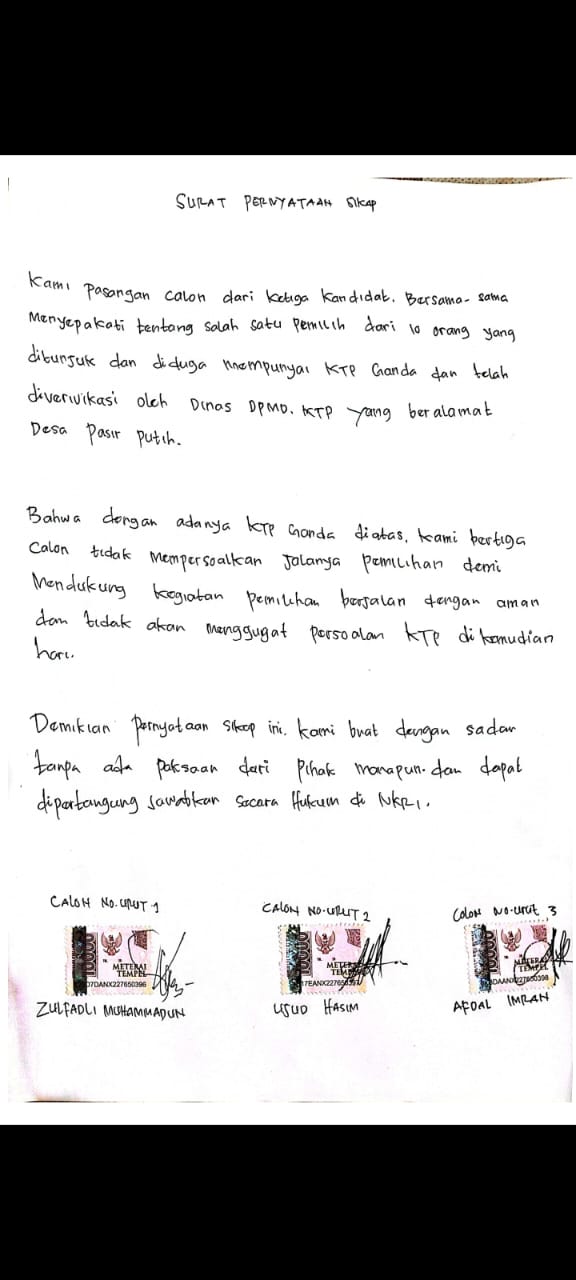 SURAT PERNYATAAN Sikap
Kami Pasangan Calon dari ketiga kandidat. Bersama-sama
Menyepakati tentang salah satu pemilih dari 10 orang yang
ditunjuk dan diduga mempunyai KTP Ganda dan telah
diverivikasi oleh Dinas DPMD. KTP yang beralamat
Desa Pasir Putih.
Bahwa dengan adanya KTP Ganda diatas, kami bertiga
Calon tidak Mempersoalkan Jalanya Pemilihan demi
Mendukung kegiatan pemilihan berjalan dengan aman
dan tidak akan menggugat persoalan KTP di kemudian
hari.
Demikian Pernyataan Sikap ini. kami buat dengan sadar
tanpa ada paksaan dari Pihak manapun. dan dapat
dipertangung Jawabkan Secara Hukum di NKRI.
CALON No. URUT 1
CALON NO-URUT 2
Calon No-urut 3
10000
METERAI
TEMPEL
07DANX227650396
10000
METERAI
TEMPEL
10000
METERAI
TEMPEL
ZULFADLI MUHAMMADUN
USUD HASIM
AFDAL IMRAN